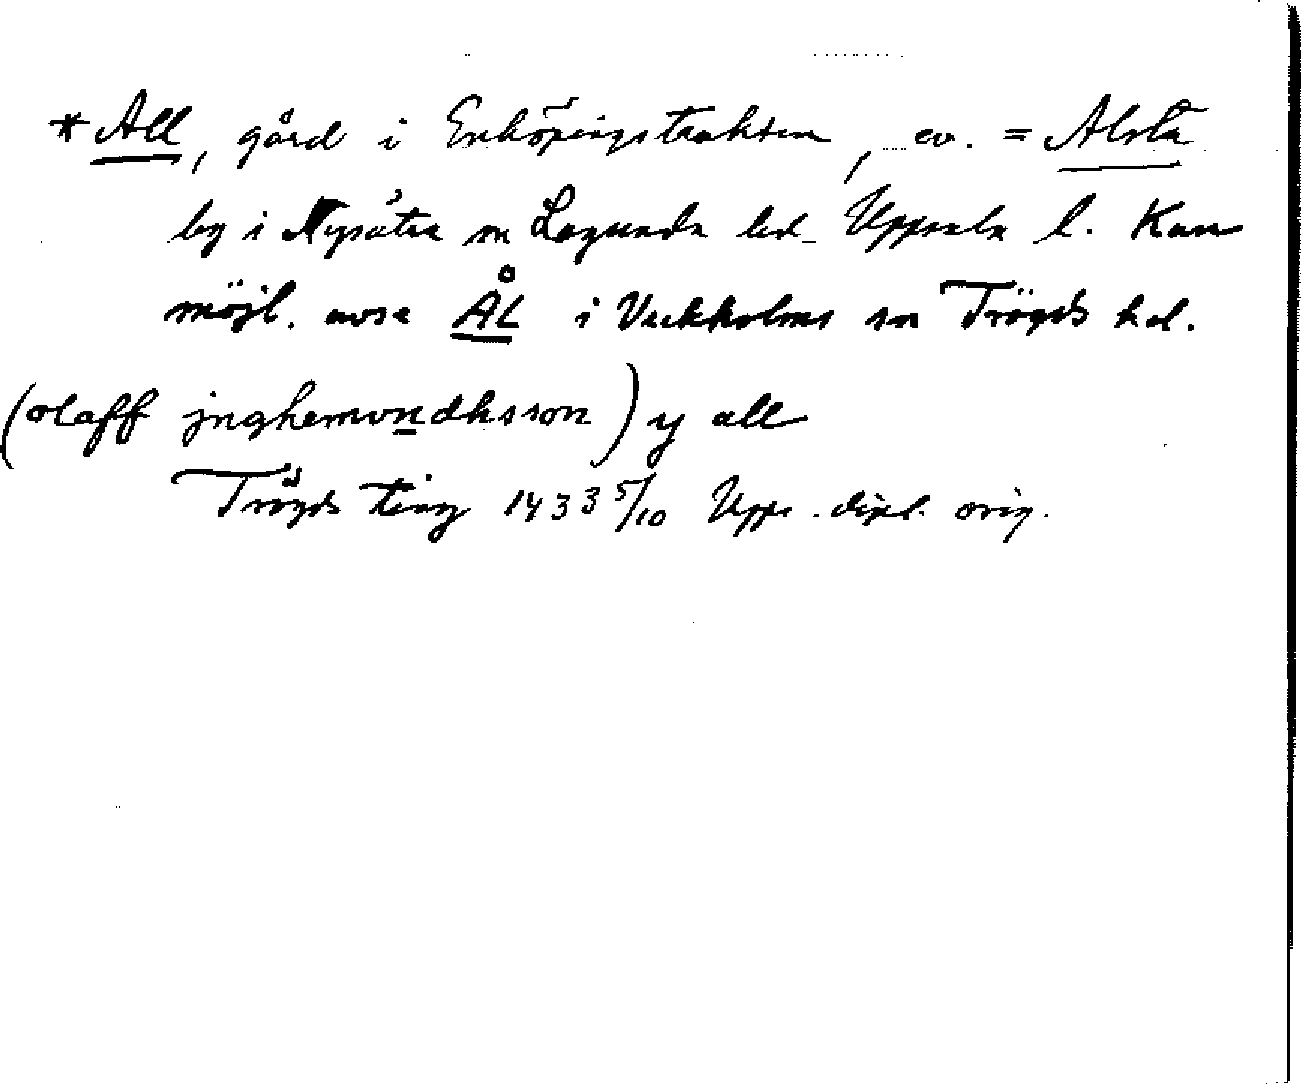 *All, gård i Enköpingstrakten, ev. = Alsta
by i Nysätra sn Lagunda hd. Uppsala l. Kan
möjl. avse ÅL i Veckholms sn Trögds hd.
(olaff jnghemundhsson) y all
Trögds ting 1433 5/10 Upps. dipl. orig.